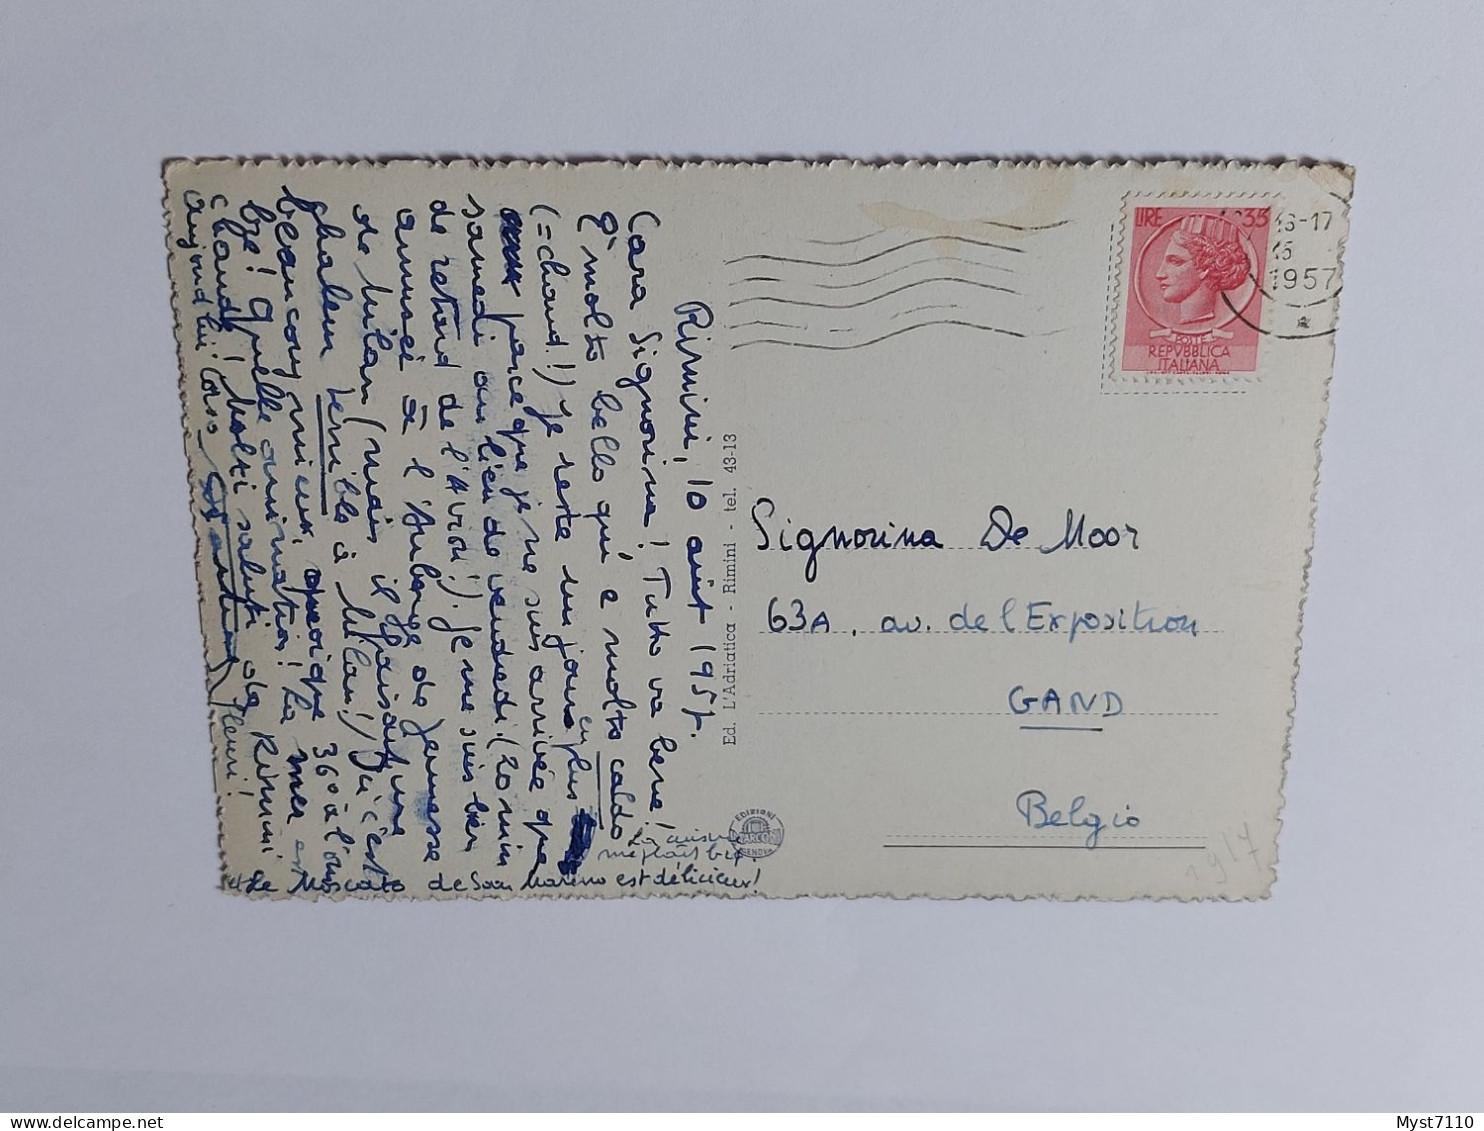 Rimini, 10 août 1957.
Cara Signorina! Tutto va bene!
E' molto bello qui e molto caldo
(= chaud!) Je reste un jour en plus
parce que je ne suis arrivée que
samedi au lieu de vendredi. (20 min
de retard de l'Avion!). Je me suis bien
amusée à l'Auberge de Jeunesse
de Milan (mais il faisait une
chaleur terrible à Milan!) Ici c'est
beaucoup mieux, quoique 36° à l'om
bre! Quelle animation! La mer est
chaude! Molti saluti da Rimini
aujourd'hui Corso
fleuri!
La cuisine
me plaît
Le Moscato de San Marino est délicieux!
Ed. L'Adriatica - Rimini - tel. 43-13
EDIZIONI
MARCONI
GENOVA
LIRE 35
POSTE
REPVBBLICA
ITALIANA
16-17
1957
Signorina De Moor
63A, av. de l'Exposition
GAND
Belgio
Myst7110